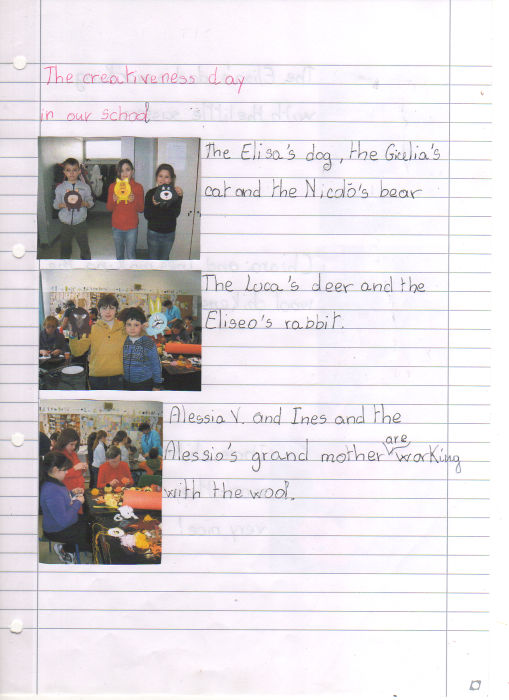 The creativeness day
in our school
The Elisa's dog, the Giulia's
cat and the Nicolò's bear
The Luca's deer and the
Eliseo's rabbit.
Alessia V. and Ines and the
Alessio's grand mother are working
with the wool.